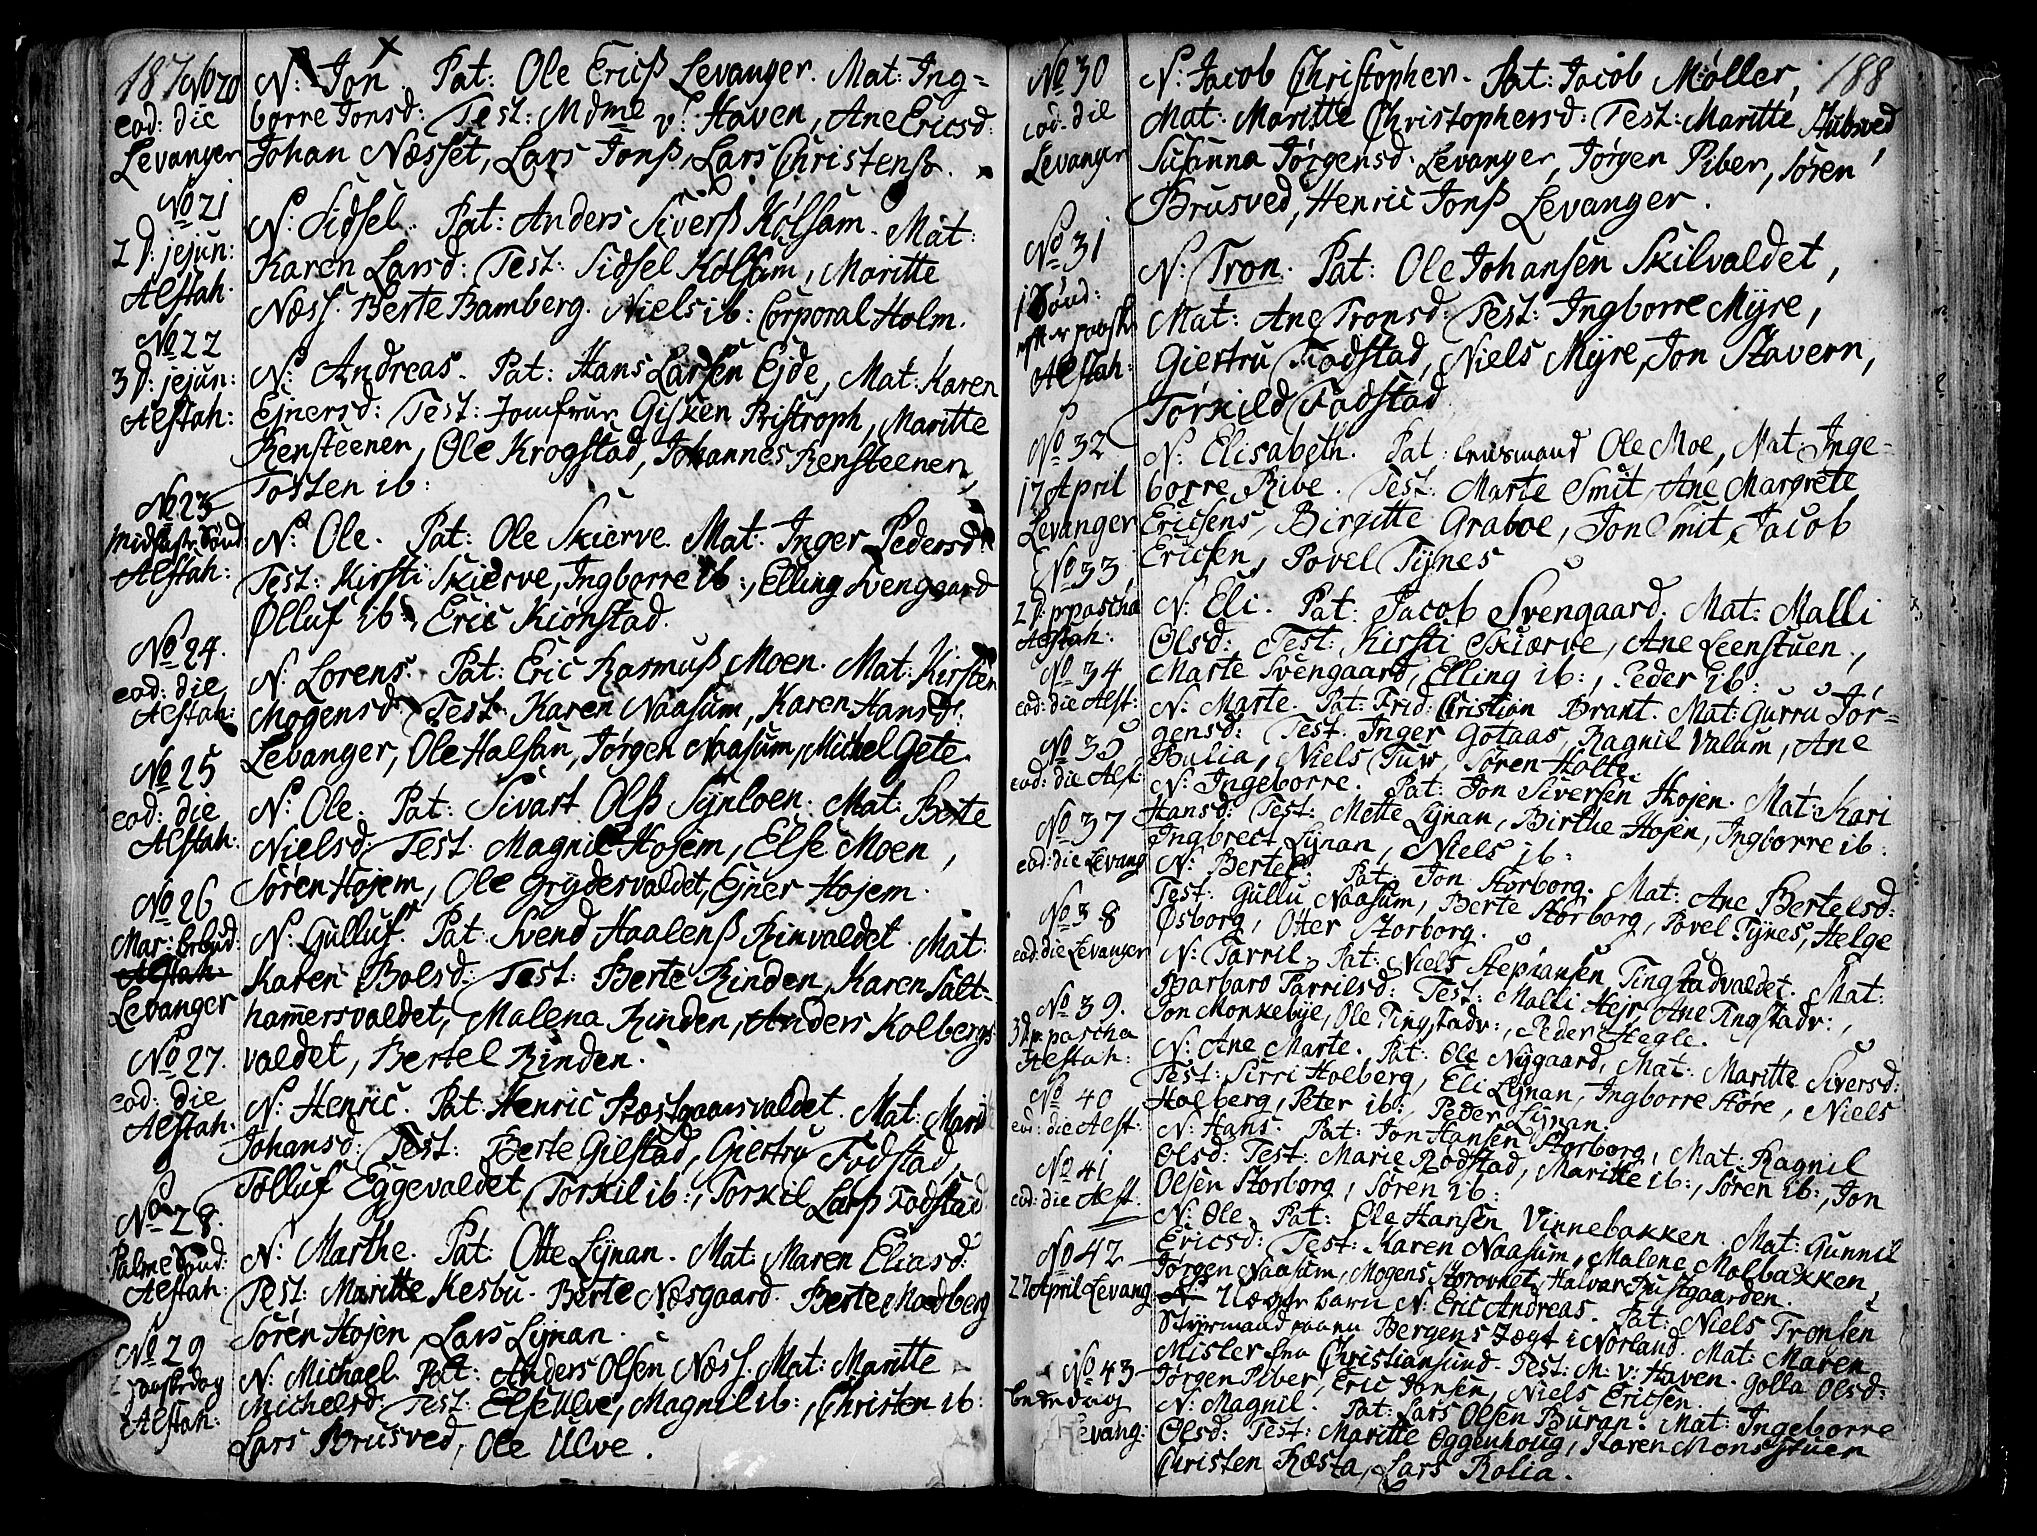 187
No 20
eod: die
Levanger
N: Jon. Pat: Ole Ericß Levanger. Mat: Ing-
borre Jonsd: Test: Mdme v: Haven, Ane Ericsd:
Johan Næsset, Lars Jonß, Lars Christenß.
No 21
2 D: jejun:
Alstah:
N: Sidsel. Pat: Anders Siverß Kølsam. Mat:
Karen Larsd: Test: Sidsel Kølsam, Maritte
Næss. Berte Bamberg. Niels ib: Corporal Holm.
No 22
3 D: jejun:
Alstah:
N: Andreas. Pat: Hans Larsen Ejde, Mat: Karen
Ejnersd: Test: Jomfrue Gisken Bistroph, Maritte
Rensteenen, Ole Krogstad, Johannes Rensteenen,
Tosten ib:
No 23
Midfaste Sønd:
Alstah:
N: Ole. Pat: Ole Skierve. Mat: Inger Pedersd:
Test: Kirsti Skierve, Ingborre ib:, Elling Svengaard
Ølluf ib:, Eric Kiønstad.
No 24.
eod: die
Alstah:
N: Lorens. Pat: Eric Rasmuß Moen. Mat: Kirsten
Mogensd: Test: Karen Naasum, Karen Hansd:
Levanger, Ole Halsan, Jørgen Naasum, Michel Gete.
No 25
eod: die
Alstah:
N: Ole. Pat: Sivart Olß Synloen. Mat: Berte
Nielsd: Test: Magnil Hojem, Else Moen,
Søren Hojem, Ole Grydesvaldet, Ejner Hojem.
No 26
Mar: bebud:
Levanger
N: Gulluf. Pat: Svend Haalenß Rinvaldet. Mat:
Karen Bolsd: Test: Berte Rinden, Karen Salt-
hamersvaldet, Malena Rinden, Anders Kolbergs-
valdet, Bertel Rinden.
No 27.
eod: die
Alstah:
N: Henric. Pat: Henric Præstgaarsvaldet. Mat: Marit
Johansd: Test: Berte Gilstad, Giertru Fodstad,
Tolluf Eggevaldet, Torkil ib:, Torkil Larß Fodstad
No 28.
Palme Sønd:
Alstah:
N: Marthe. Pat: Otte Lynan. Mat: Maren Eliasd:
Test: Maritte Kesbu. Berte Næsgaard. Berte Modberg
Søren Hojen, Lars Lynan.
No 29
paaskedag
Alstah:
N: Michael. Pat: Anders Olsen Næss. Mat: Maritte
Michelsd: Test: Else Ulve, Magnil ib:, Christen ib:
Lars Brusved, Ole Ulve.
188
No 30
eod: die
Levanger
N: Jacob Christopher. Pat: Jacob Møller,
Mat: Maritte Christophersd: Test: Maritte Stubsved
Susanna Jørgensd: Levanger, Jørgen Piber, Søren
Brusved, Henric Jonß Levanger.
No 31
1 Sønd:
efter paaske
Alstah:
N: Tron. Pat: Ole Johansen Skilvaldet,
Mat: Ane Tronsd: Test: Ingborre Myre,
Giertru Fodstad, Niels Myre, Jon Stavern,
Torkild Fodstad
No 32
17 April
Levanger
N: Elisabeth. Pat: lensmand Ole Moe, Mat: Inge-
borre Ribe. Test: Marte Smit, Ane Margrete
Ericsens, Birgitte Graboe, Jon Smit, Jacob
Ericsen, Povel Tynes
No 33
2 D: p pascha
Alstah:
N: Eli. Pat: Jacob Svengaard. Mat: Malli
Olsd: Test: Kirsti Skiærve, Ane Leenstuen,
Marte Svengaard, Elling ib:, Peder ib:
No 34
eod: die Alst:
N: Marte. Pat: Frid: Christian Brant. Mat: Gurru Jør-
gensd: Test: Inger Gotaas, Ragnil Valum, Ane
Bulia, Niels Tuv, Søren Holte.
No 35
eod: die Alst:
N: Ingeborre. Pat: Jon Siversen Hojen. Mat: Kari
Hansd: Test: Mette Lynan, Birthe Hojen, Ingborre ib:
Ingbrect Lynan, Niels ib:
No 37
eod: die Levang
N: Bertel. Pat: Jon Storborg. Mat: Ane Bertelsd:
Test: Gullu Naasum, Berte Storborg, Povel Tynes, Helge
Øsborg, Otter Storborg.
No 38
eod: die Levanger
N: Tarril. Pat: Niels Stephansen Tingstadvaldet. Mat:
Barbaro Tarrilsd: Test: Malli Hejr, Ane Tingstadv:,
Jon Monkebye, Ole Tingstadv:, Peder Hegle.
No 39.
3 D p: pascha
Alstah:
N: Ane Marte. Pat: Ole Nygaard, Mat: Maritte Siversd:
Test: Sirri Holberg, Eli Lynan, Ingborre Støre, Niels
Holberg, Peter ib:, Peder Lynan.
No 40
eod: die Alst:
N: Hans. Pat: Jon Hansen Storborg, Mat: Ragnil
Olsd: Test: Marie Rodstad, Maritte ib:, Søren ib:, Jon
Olsen Storborg, Søren ib:
No 41
eod: die Alst:
N: Ole. Pat: Ole Hansen Vinnebakken. Mat: Gunnil
Ericsd: Test: Karen Naasum, Malene Molbakken
Jørgen Naasum, Mogens Storovnet, Halvar Rustgaarden.
No 42
27 April Levang:
Uægte barn N: Eric Andreas. Pat: Niels Tronsen
Styrmand paa en Bergens Jægt i Norland. Mat: Maren
Misler fra Christiansund. Test: M: v: Haven. Golla Olsd:
Jørgen Piber, Eric Jonsen, Niels Ericsen.
No 43
bededag
Levang:
N: Magnil. Pat: Lars Olsen Buran. Mat: Ingeborre
Olsd: Test: Maritte Oggenhoug, Karen Monsstuen
Christen Ræsta, Lars Rolia.